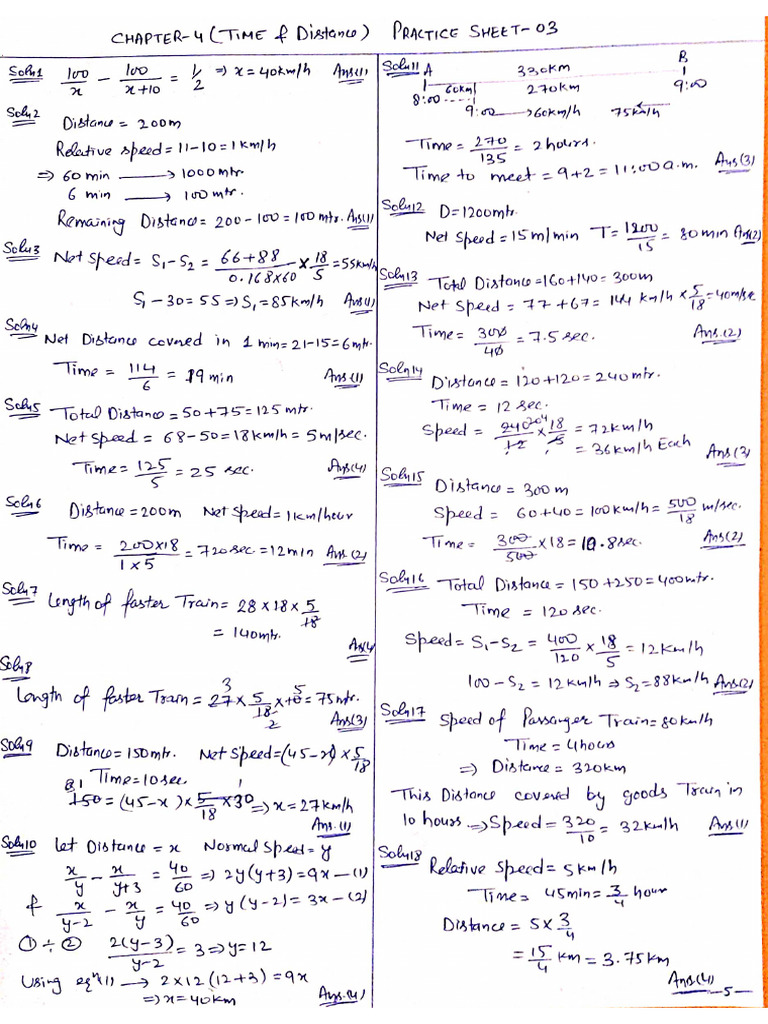 CHAPTER-4 (TIME & Distance) PRACTICE SHEET-03
Soln1 100/x - 100/(x+10) = 1/2 ⇒ x = 40km/h Ans(1)
Soln2
Distance = 200m
Relative speed = 11-10 = 1km/h
⇒ 60 min → 1000 mtr
6 min → 100 mtr.
Remaining Distance = 200-100 = 100 mtr. Ans(1)
Soln3 Net Speed = S1-S2 = (66+88)/(0.168×60) × 18/5 = 55km/h
S1-30 = 55 ⇒ S1 = 85km/h Ans(1)
Soln4
Net Distance covered in 1 min = 21-15 = 6 mtr.
Time = 114/6 = 19 min Ans(1)
Soln5 Total Distance = 50+75 = 125 mtr.
Net Speed = 68-50 = 18km/h = 5m/sec.
Time = 125/5 = 25 sec. Ans(4)
Soln6 Distance = 200m Net Speed = 1km/hour
Time = (200×18)/(1×5) = 720sec = 12min Ans(2)
Soln7 Length of faster Train = 28×18×5/18
= 140mtr. Ans(4)
Soln8
Length of faster Train = 27 3 × 5/18 2 × 10 5 = 75mtr.
Ans(3)
Soln9 Distance = 150mtr. Net Speed = (45-x) × 5/18
Time = 10sec
150 = (45-x) × 5/18 × 30 ⇒ x = 27km/h
Ans.(1)
Soln10 let Distance = x Normal Speed = y
x/y - x/(y+3) = 40/60 ⇒ 2y(y+3) = 9x -(1)
& x/(y-2) - x/y = 40/60 ⇒ y(y-2) = 3x -(2)
① ÷ ② 2(y-3)/(y-2) = 3 ⇒ y = 12
Using eqn(1) → 2×12(12+3) = 9x
⇒ x = 40km Ans.(4)
Soln11 A 330km B
60km 270km 9:00
8:00
9:00 → 60km/h 75km/h
Time = 270/135 = 2hours.
Time to meet = 9+2 = 11:00 a.m. Ans(3)
Soln12 D = 1200mtr.
Net Speed = 15m/min T = 1200/15 = 80min Ans(2)
Soln13 Total Distance = 160+140 = 300m
Net Speed = 77+67 = 144 km/h × 5/18 = 40m/sec
Time = 300/40 = 7.5 sec. Ans.(2)
Soln14 Distance = 120+120 = 240mtr.
Time = 12 sec.
Speed = 240/12 × 18/5 = 72km/h
= 36km/h Each Ans(3)
Soln15 Distance = 300m
Speed = 60+40 = 100km/h = 500/18 m/sec.
Time = 300/500 × 18 = 10.8sec. Ans(2)
Soln16 Total Distance = 150+250 = 400mtr.
Time = 120sec.
Speed = S1-S2 = 400/120 × 18/5 = 12km/h
100-S2 = 12km/h ⇒ S2 = 88km/h Ans(2)
Soln17 Speed of Passanger Train = 80km/h
Time = 4hours
⇒ Distance = 320km
This Distance covered by goods Train in
10 hours ⇒ Speed = 320/10 = 32km/h Ans(1)
Soln18 Relative Speed = 5km/h
Time = 45min = 3/4 hour
Distance = 5 × 3/4
= 15/4 km = 3.75km
Ans(4)
-5-